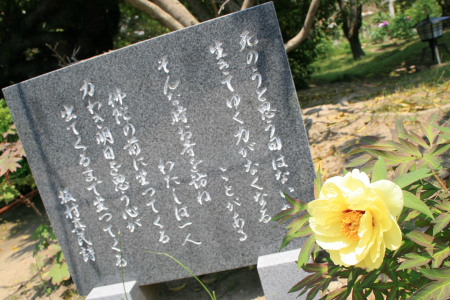 死のうと思う日はない
生きてゆく力がなくなる
ことがある
そんな時お寺を訪ね
わたしは一人
仏陀の前に坐ってくる
力わき明日を思う心が
出てくるまで坐ってくる